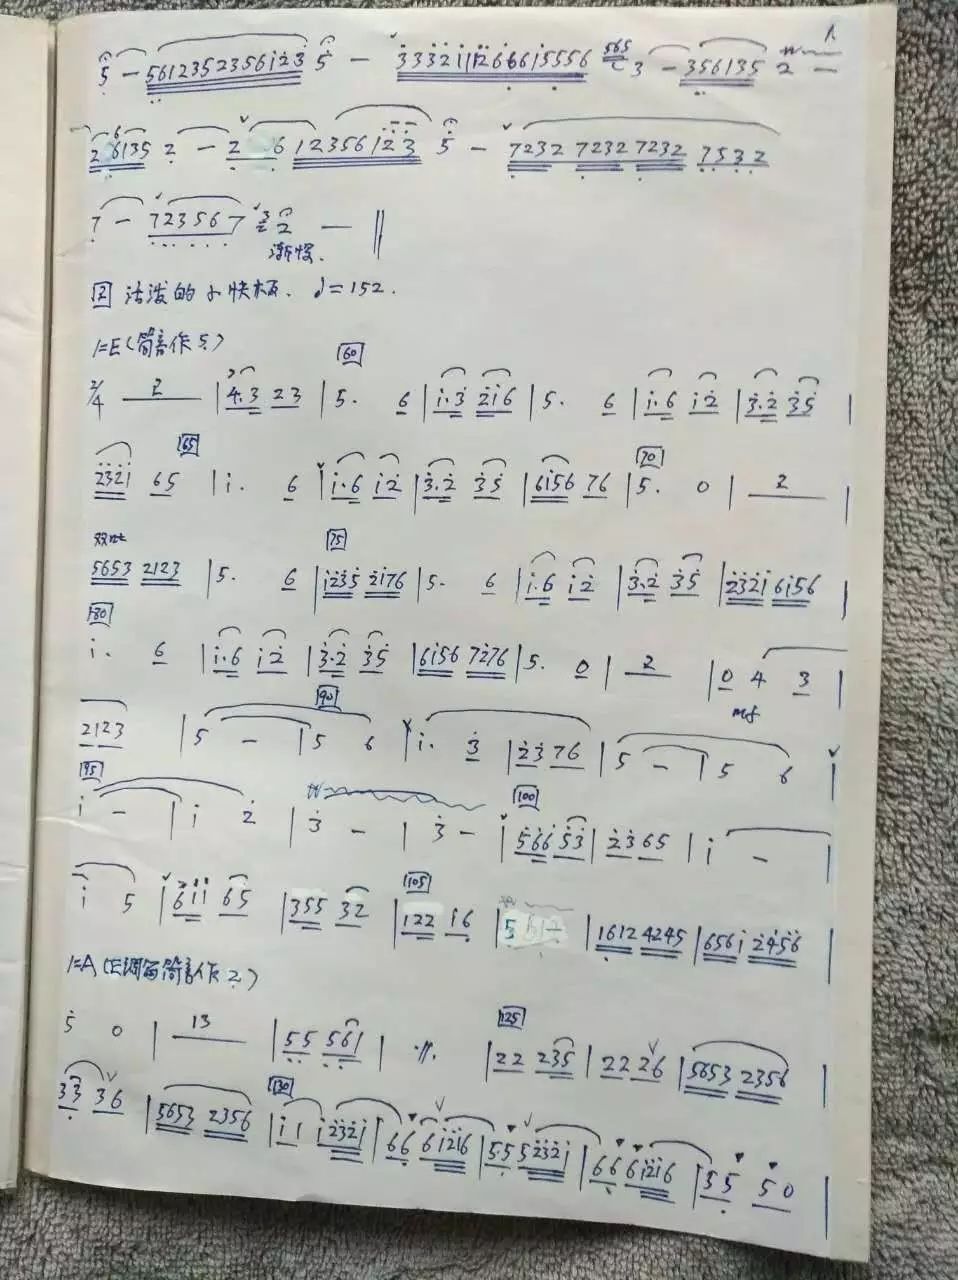 5 — 561235235612 3 5 — 3332111266615556 565 3 — 356135 2 —
26135 2 — 2 6 12356123 5 — 7232 7232 7232 7532
7 — 723567 3 2 — ‖
渐慢.
2 活泼的小快板. ♩=152.
1=E(筒音作5)
60
2/4 2 | 4.3 23 | 5. 6 | 1.3 216 | 5. 6 | 1.6 12 | 3.2 35 |
65 70
2321 65 | 1. 6 | 1.6 12 | 3.2 35 | 6156 76 | 5. 0 | 2 |
双吐 75
5653 2123 | 5. 6 | 1235 2176 | 5. 6 | 1.6 12 | 3.2 35 | 2321 6156 |
80
1. 6 | 1.6 12 | 3.2 35 | 6156 7276 | 5. 0 | 2 | 0 4 3 |
mf
90
2123 | 5 — | 5 6 | 1. 3 | 23 76 | 5 — | 5 6 |
95 100
1 — | 1 2 | 3 — | 3 — | 566 53 | 2365 | 1 — |
105
1 5 | 611 65 | 355 32 | 122 16 | 5 | 1612 4245 | 6561 2456 |
1=A(E调笛筒音作2)
125
5 0 | 13 | 55 561 | ·//. | 22 235 | 22 26 | 5653 2356 |
130
33 36 | 5653 2356 | 11 12321 | 66 61216 | 55 52321 | 66 61216 | 55 50 |